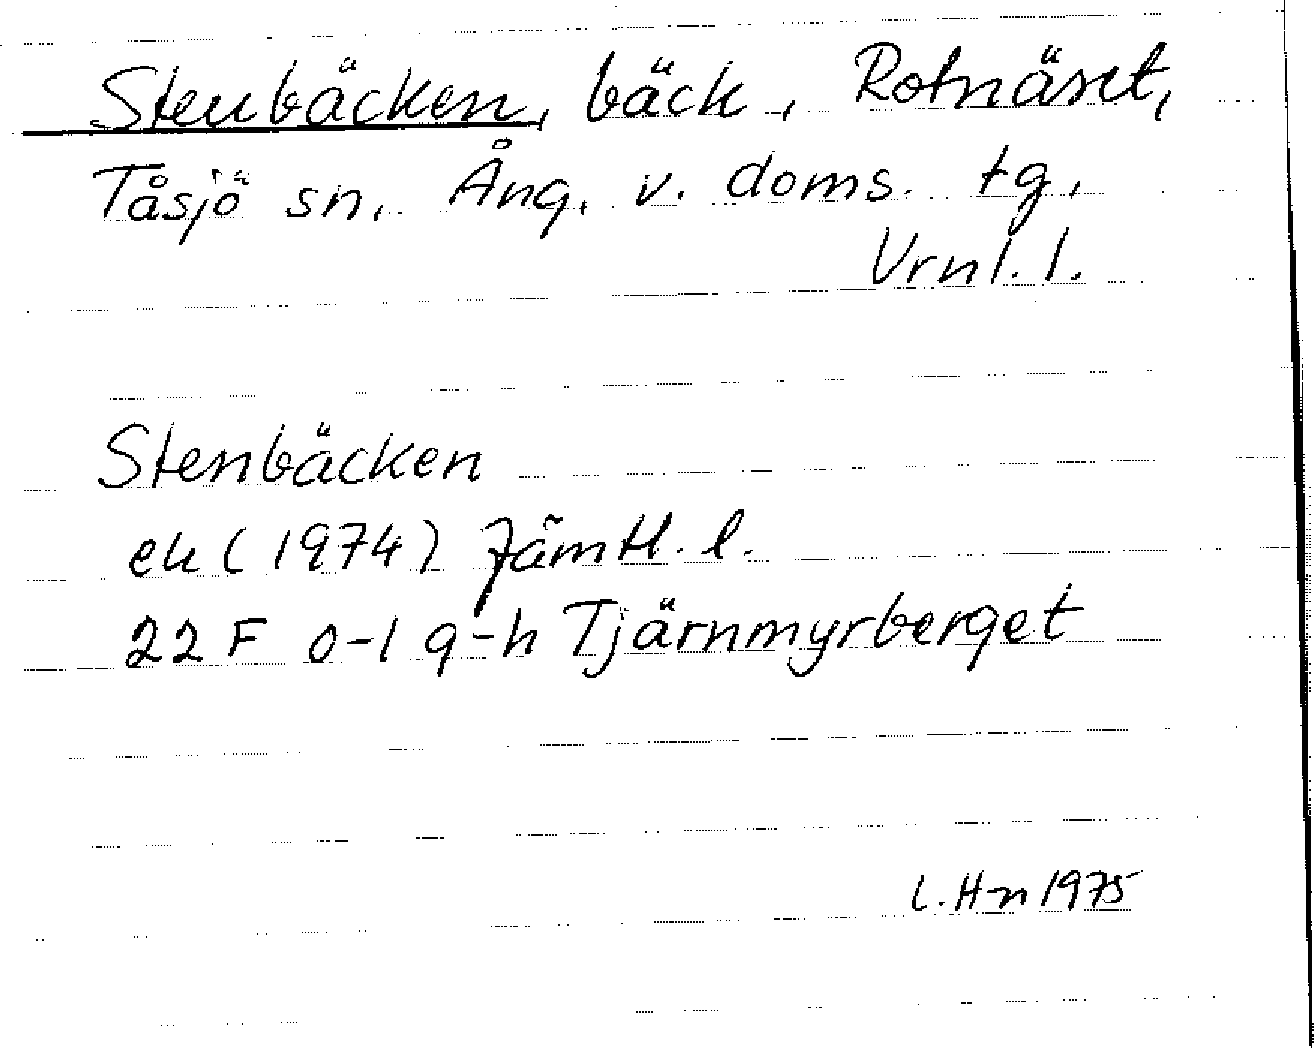 Stenbäcken, bäck, Rotnäset,
Tåsjö sn, Ång. v. doms. tg.
Vrnl. l.
Stenbäcken
ek (1974) Jämtl. l.
22 F o-l g-h Tjärnmyrberget
L. H-n 1975